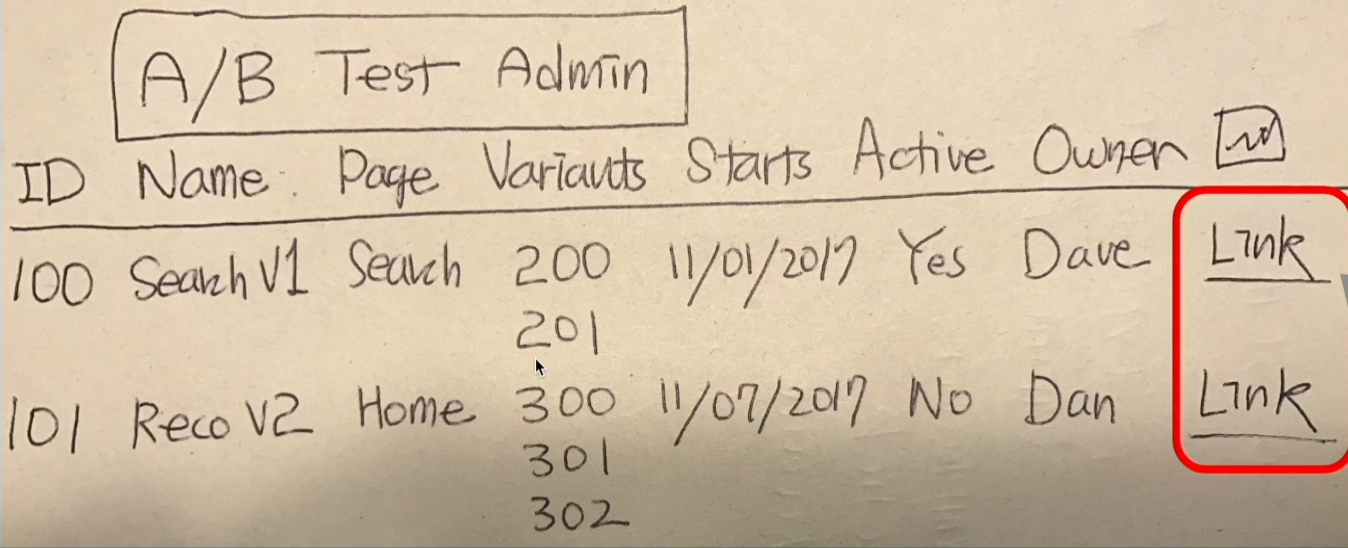 A/B Test Admin
ID Name Page Variants Starts Active Owner
100 Search V1 Search 200 11/01/2017 Yes Dave Link
201
101 Reco V2 Home 300 11/07/2017 No Dan Link
301
302